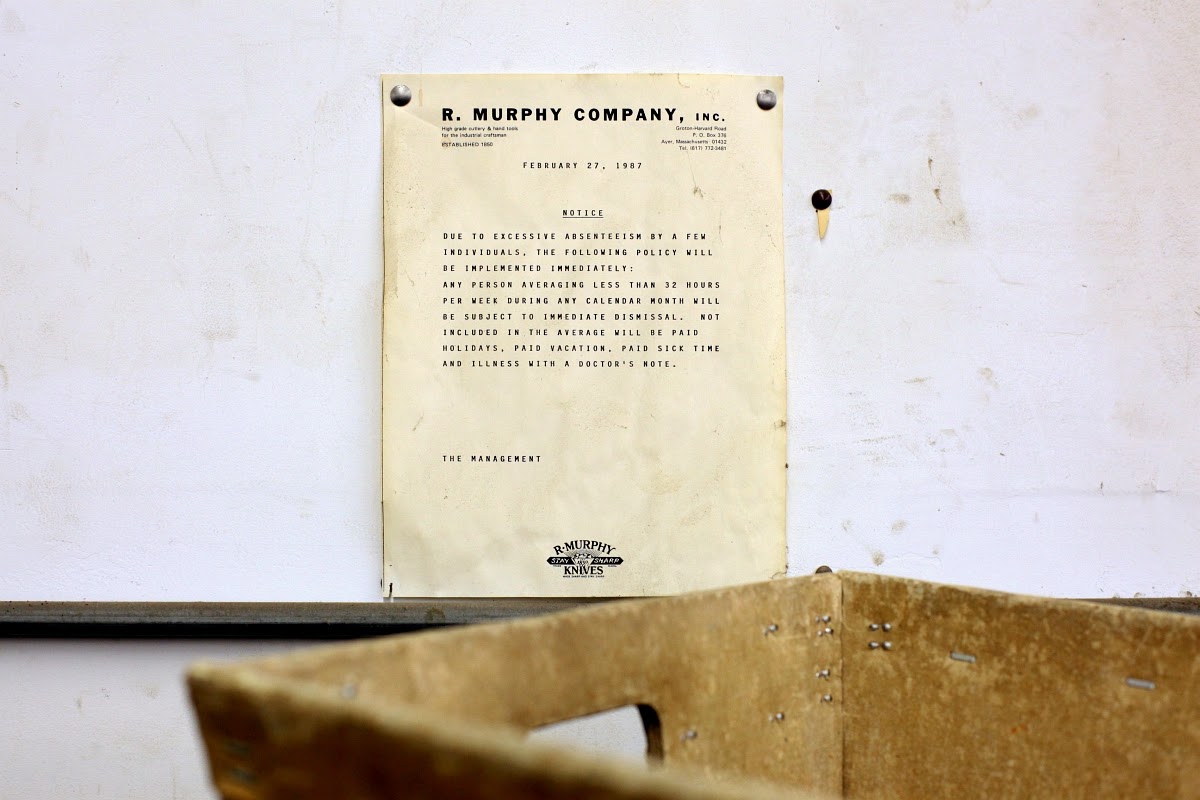 R. MURPHY COMPANY, INC.
High grade cutlery & hand tools
for the industrial craftsman
ESTABLISHED 1850
Groton-Harvard Road
P. O. Box 376
Ayer, Massachusetts 01432
Tel. (617) 772-3481
FEBRUARY 27, 1987
NOTICE
DUE TO EXCESSIVE ABSENTEEISM BY A FEW
INDIVIDUALS, THE FOLLOWING POLICY WILL
BE IMPLEMENTED IMMEDIATELY:
ANY PERSON AVERAGING LESS THAN 32 HOURS
PER WEEK DURING ANY CALENDAR MONTH WILL
BE SUBJECT TO IMMEDIATE DISMISSAL. NOT
INCLUDED IN THE AVERAGE WILL BE PAID
HOLIDAYS, PAID VACATION, PAID SICK TIME
AND ILLNESS WITH A DOCTOR'S NOTE.
THE MANAGEMENT
R·MURPHY
STAY SHARP
KNIVES